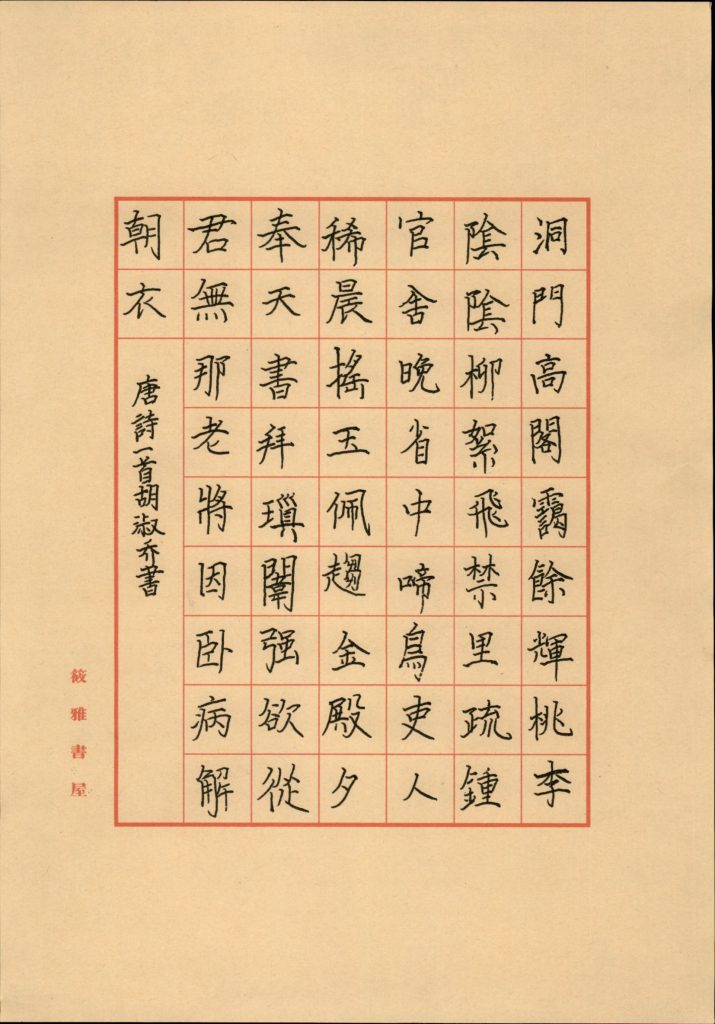 洞門高閣靄餘輝桃李
陰陰柳絮飛禁里疏鍾
官舍晚省中啼鳥吏人
稀晨搖玉佩趨金殿夕
奉天書拜瑣闈强欲從
君無那老將因卧病解
朝衣
唐詩一首胡淑乔書
筱雅書屋